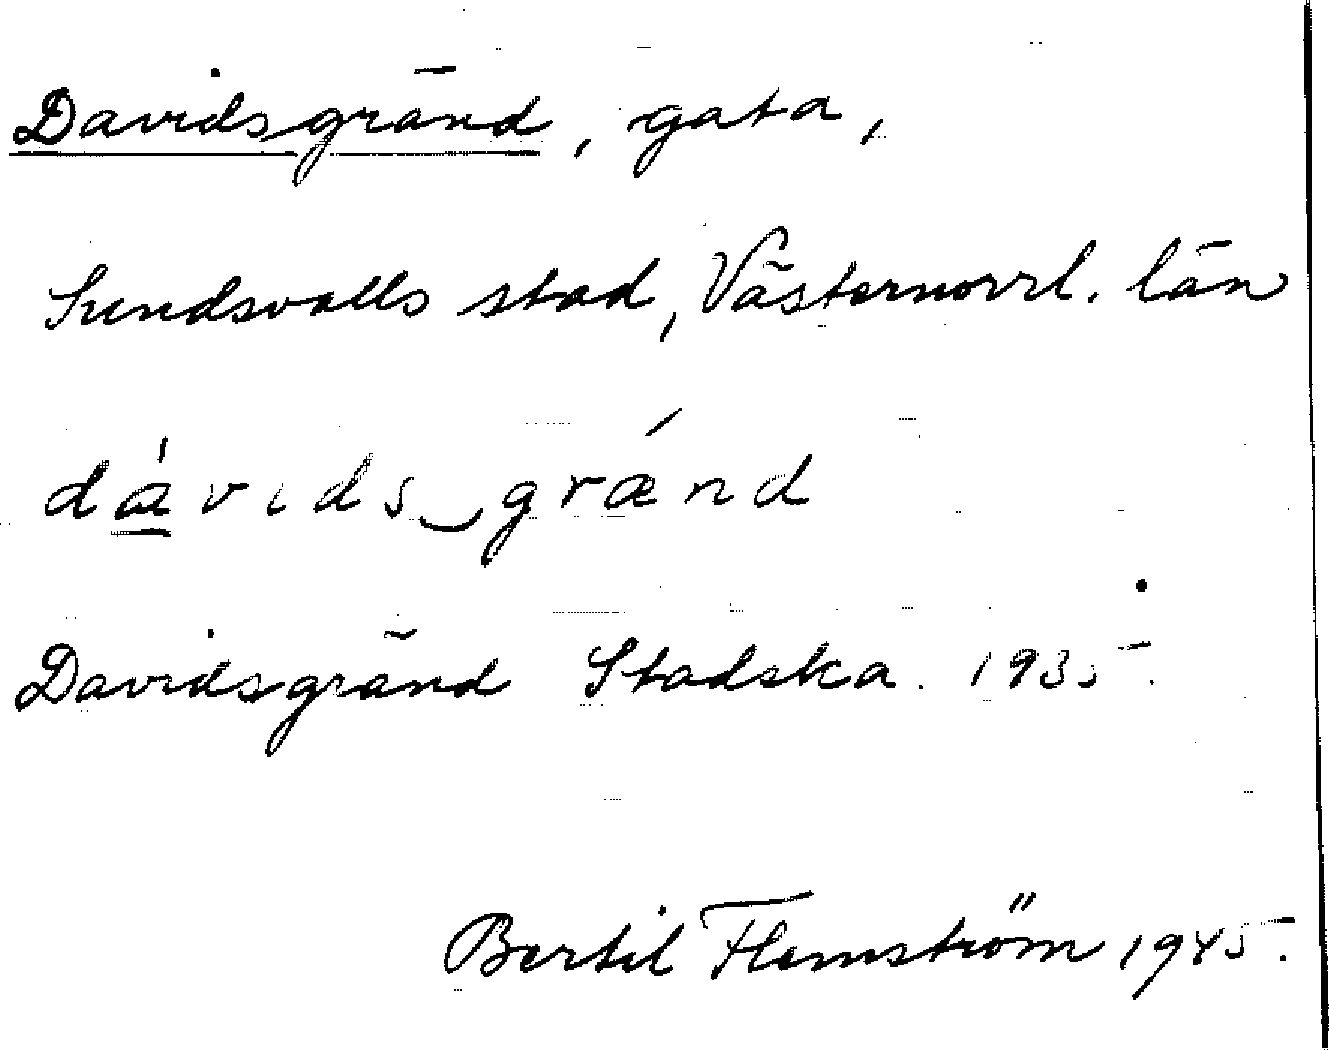 Davidsgränd, gata,
Sundsvalls stad, Västernorrl. län
dá̱vids‿grǽnd
Davidsgränd Stadska. 1935.
Bertil Flemström 1945.